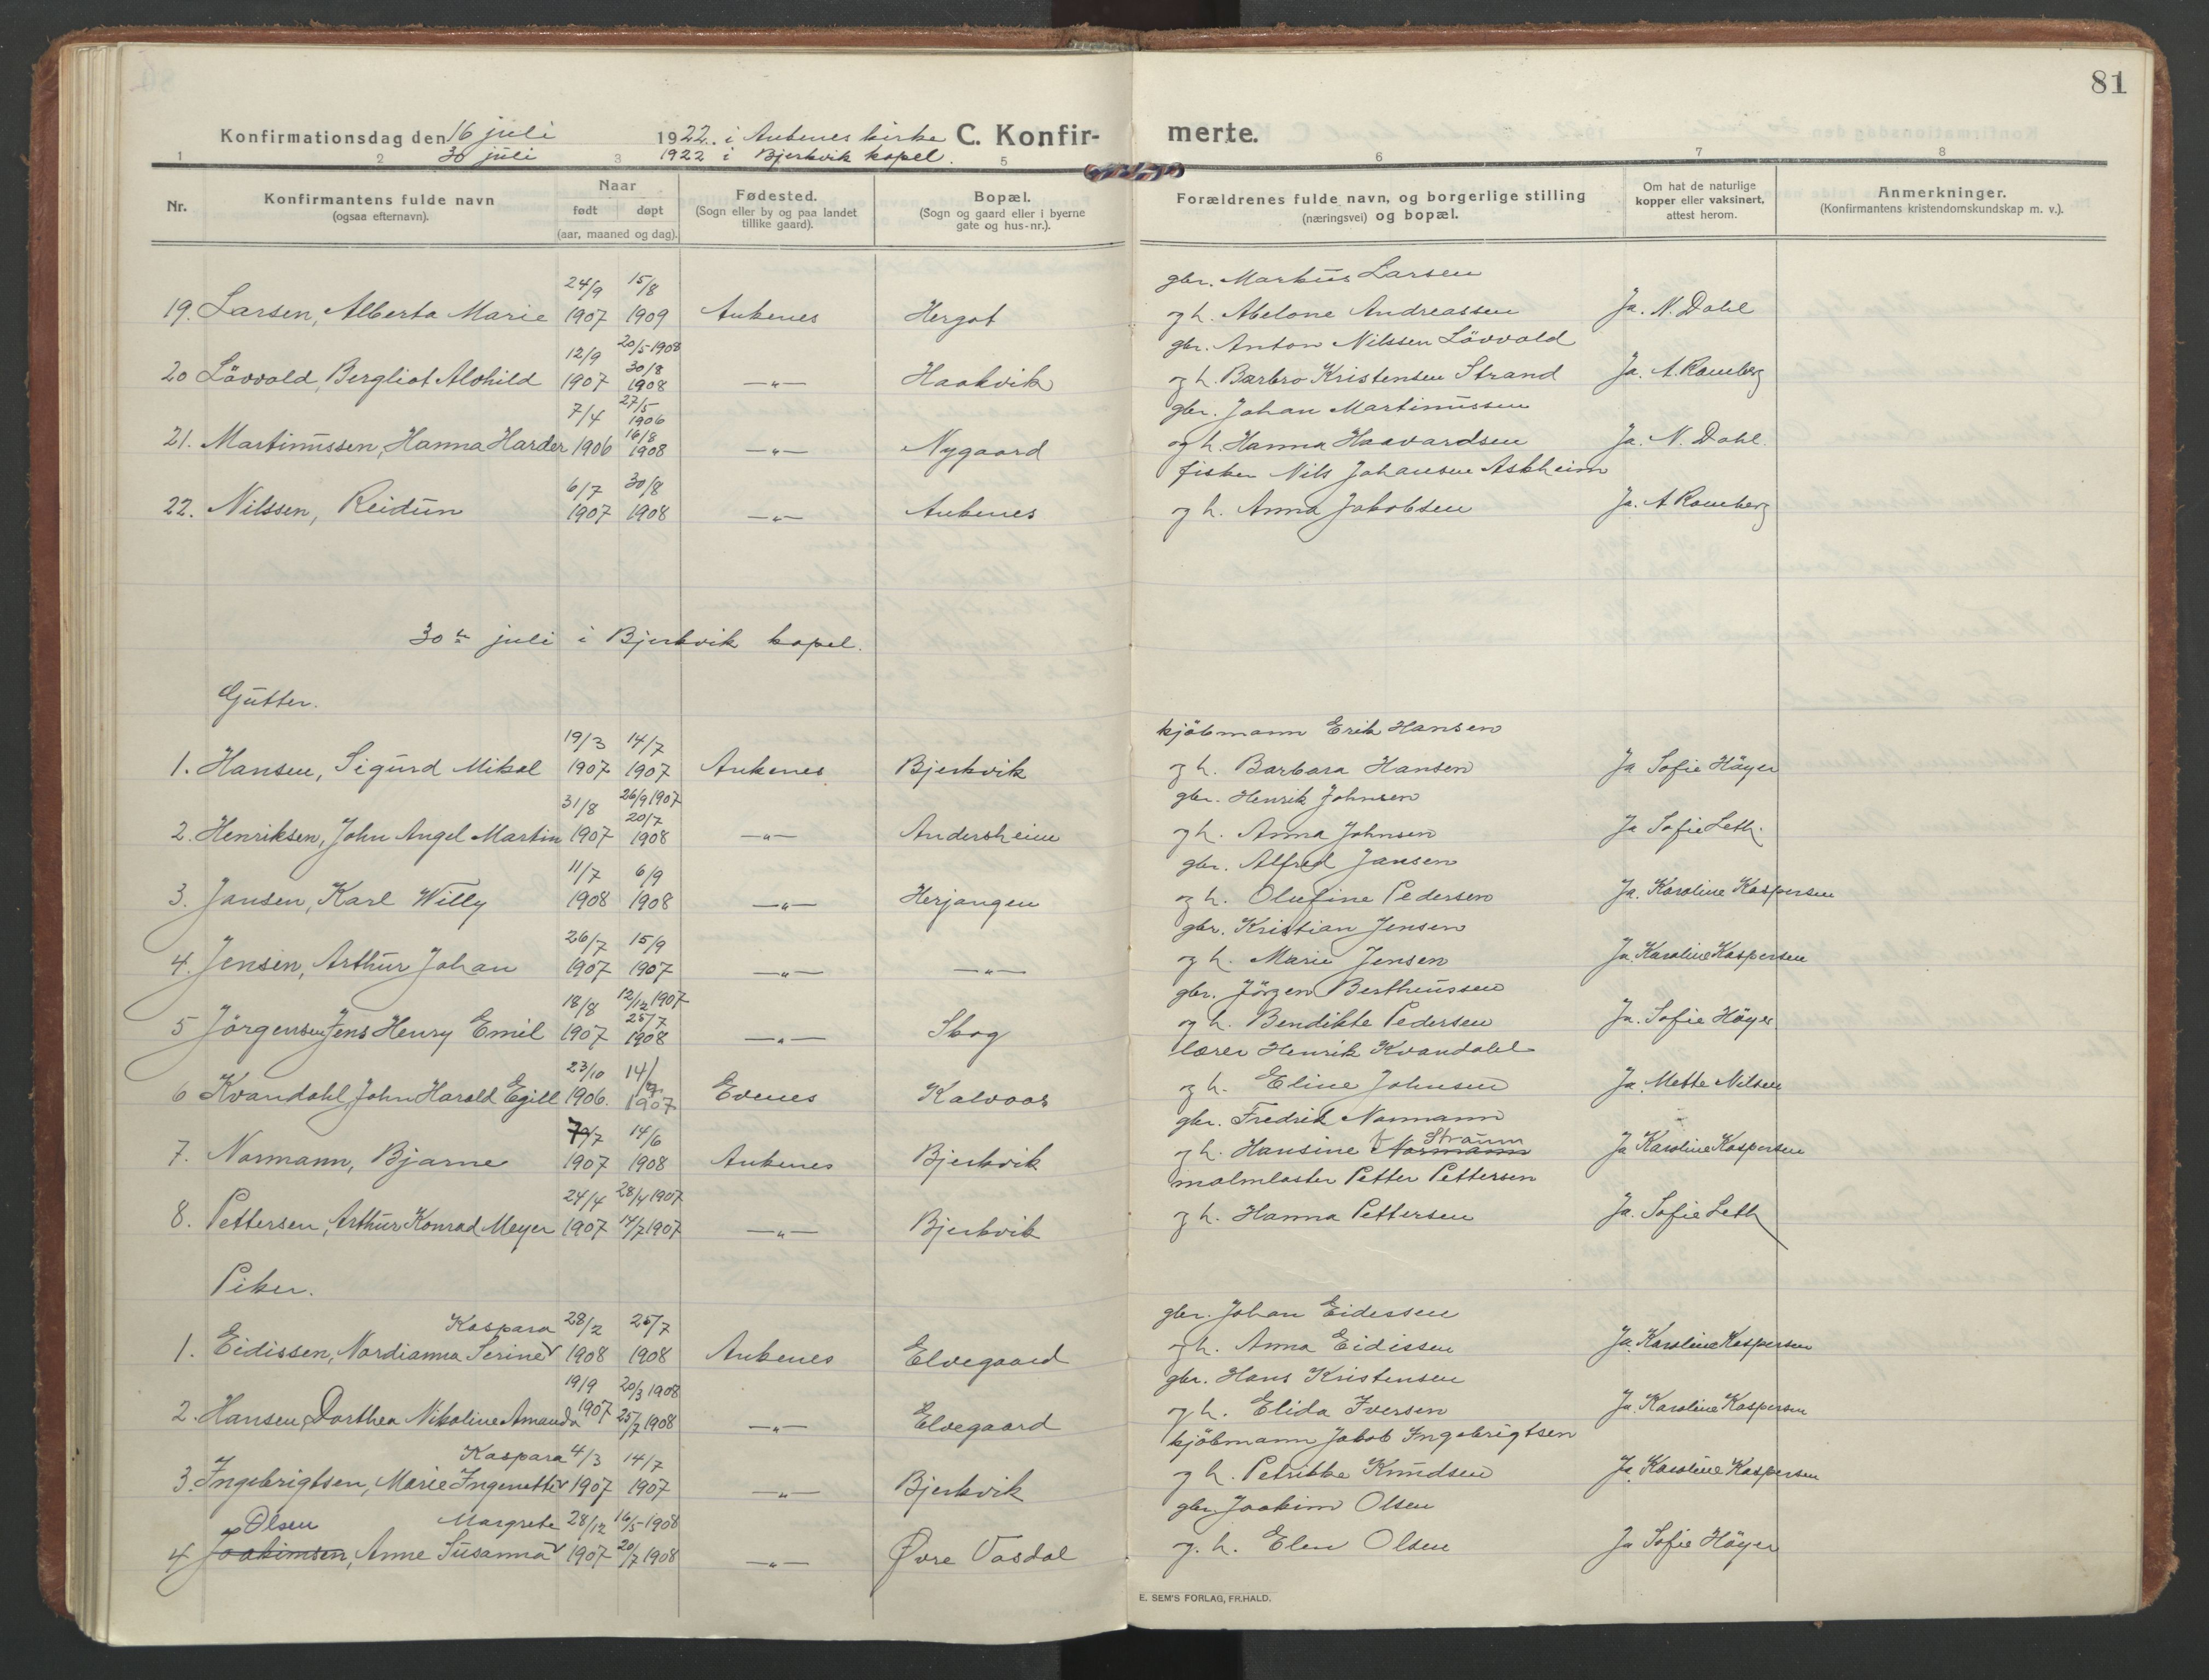 81
Konfirmationsdag den 16 juli 1922. i Ankenes kirke C. Konfirmerte.
30 juli 1922 i Bjerkvik kapel.
1 2 3 5 6 7 8
Nr.
Konfirmantens fulde navn
(ogsaa efternavn).
Naar
født døpt
(aar, maaned og dag).
Fødested.
(Sogn eller by og paa landet
tillike gaard).
Bopæl.
(Sogn og gaard eller i byerne
gate og hus-nr.).
Forældrenes fulde navn, og borgerlige stilling
(næringsvei) og bopæl.
Om hat de naturlige
kopper eller vaksinert,
attest herom.
Anmerkninger.
(Konfirmantens kristendomskundskap m. v.).
24/9 15/8 gbr. Markus Larsen
19. Larsen, Alberta Marie 1907 1909 Ankenes Hergot og h. Abelone Andreassen Ja. N. Dahl
12/9 20/5-1908 gbr. Anton Nilssen Lövvold
30/8
20 Lövvold, Bergliot Alvhild 1907 1908 —„— Haakvik og h. Barbro Kristensen Strand Ja. A. Romberg
7/4 27/5 1906 gbr. Johan Martinussen
16/8
21. Martinussen, Hanna Harder 1906 1908 —„— Nygaard og h. Hanna Haavardsen Ja. N. Dahl.
6/7 30/8 fisker Nils Johansen Askheim
22. Nilssen, Reidun 1907 1908 —„— Ankenes og h. Anna Jakobsen Ja. A Romberg
30te juli i Bjerkvik kapel.
Gutter.
19/3 14/7 kjöbmann Erik Hansen
1. Hansen, Sigurd Mikal 1907 1907 Ankenes Bjerkvik og h. Barbara Hansen Ja Sofie Höyer
31/8 26/9 1907 gbr. Henrik Johnsen
20/7
2. Henriksen, John Angel Martin 1907 1908 —„— Andersheim og h. Anna Johnsen Ja Sofie Leth.
11/7 6/9 gbr. Alfred Jansen
3. Jansen, Karl Willy 1908 1908 —„— Herjangen og h. Olufine Pedersen Ja. Karoline Kaspersen
26/7 15/9 gbr. Kristian Jensen
4. Jensen, Arthur Johan 1907 1907 —„— —„— og h. Marie Jensen Ja. Karoline Kaspersen
18/8 12/12 1907 gbr. Jörgen Bertheussen
25/7
5 Jörgensen, Jens Henry Emil 1907 1908 —„— Skog og h. Bendikte Pedersen Ja. Sofie Höyer
23/10 lærer Henrik Kvandahl
6 Kvandahl, John Harald Egill 1906. 1907 Evenes Kalvaas og h. Eline Johnsen Ja. Mette Nilsen
14/6 gbr. Fredrik Normann
Straum
7. Normann, Bjarne 1907 1908 Ankenes Bjerkvik og h. Hansine Normann Ja Karoline Kaspersen
24/4 28/4 1907 malmlaster Petter Pettersen
8. Pettersen, Arthur Konrad Meyer 1907 14/7 1907 —„— Bjerkvik og h. Hanna Pettersen Ja. Sofie Leth
Piker.
Kaspara 28/2 25/7 gbr. Johan Eidessen
1. Eidissen, Nordianna Serine 1908 1908 Ankenes Elvegaard og h. Anna Eidissen Ja. Karoline Kaspersen
19/9 20/3 1908 gbr. Hans Kristensen
2. Hansen, Dorthea Nikoline Amanda 1907 25/7 1908 —„— Elvegaard og h. Elida Iversen Ja. Karoline Kaspersen
Kaspara 4/3 14/7 kjöbmann Jakob Ingebrigtsen
3. Ingebrigtsen, Marie Ingenette 1907 1907 —„— Bjerkvik og h. Petrikke Knudsen Ja Karoline Kaspersen
Olsen Margrete 28/12 16/5-1908 gbr. Joakim Olsen
4 Joakimsen, Anne Susanna 1907 20/7 1908 —„— Øvre Vasdal og h. Elen Olsen Ja Sofie Höyer
E. SEM'S FORLAG, FR.HALD.